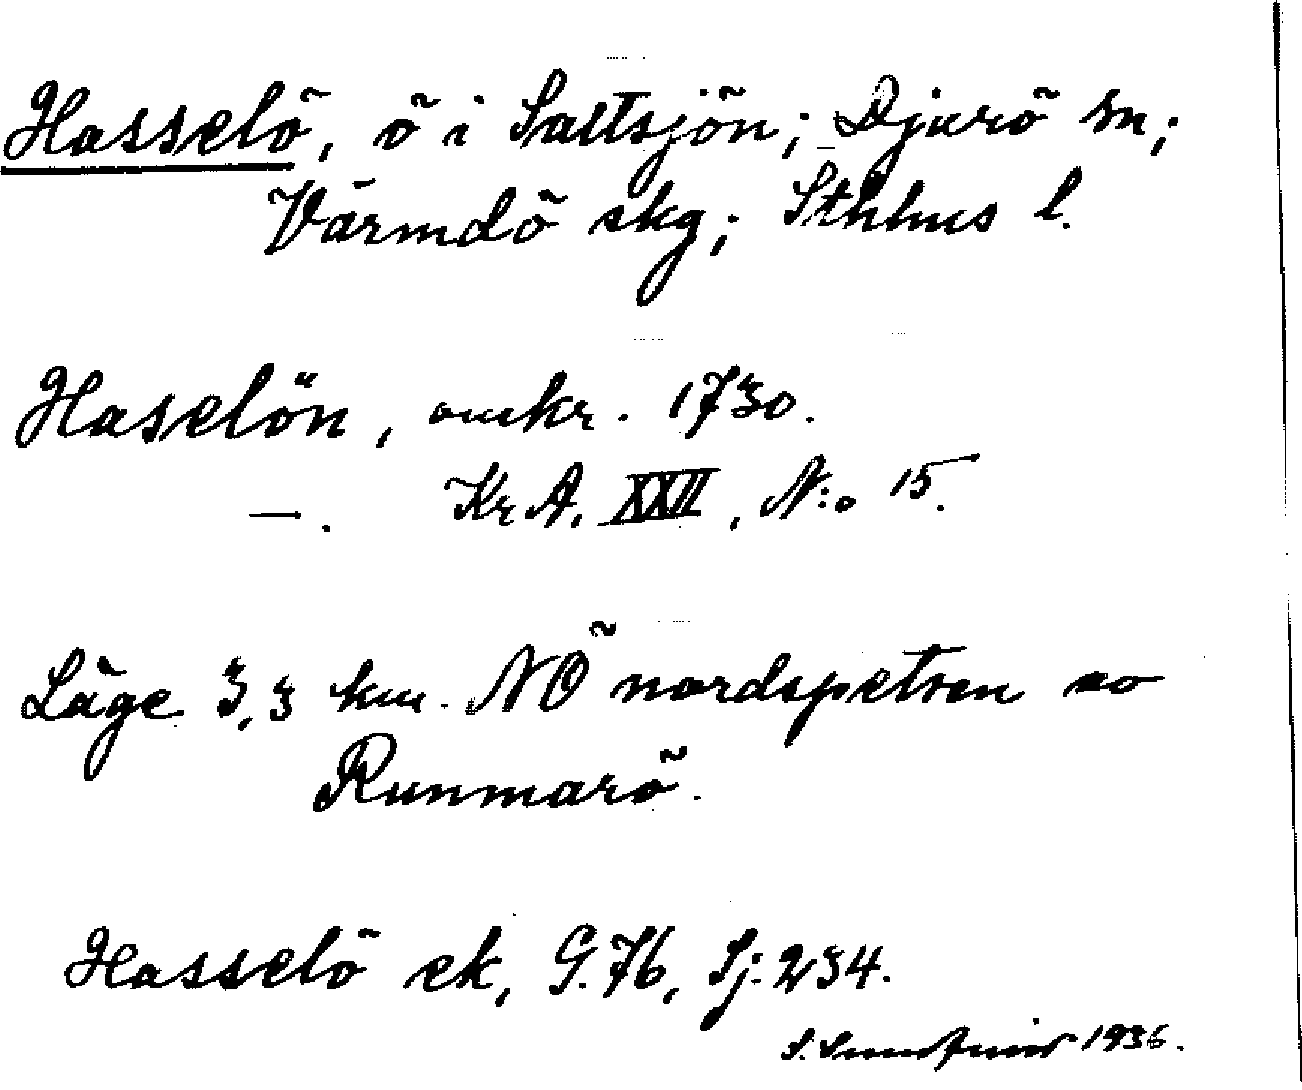 Hasselö, ö i Saltsjön; Djurö sn;
Värmdö skg; Sthlms l.
Haselön, omkr. 1730.
—. Kr A, XXII, N:o 15.
Läge 3,3 km. NÖ nordspetsen av
Runmarö.
Hasselö ek, G. 76, Sj: 234.
S. 1936.